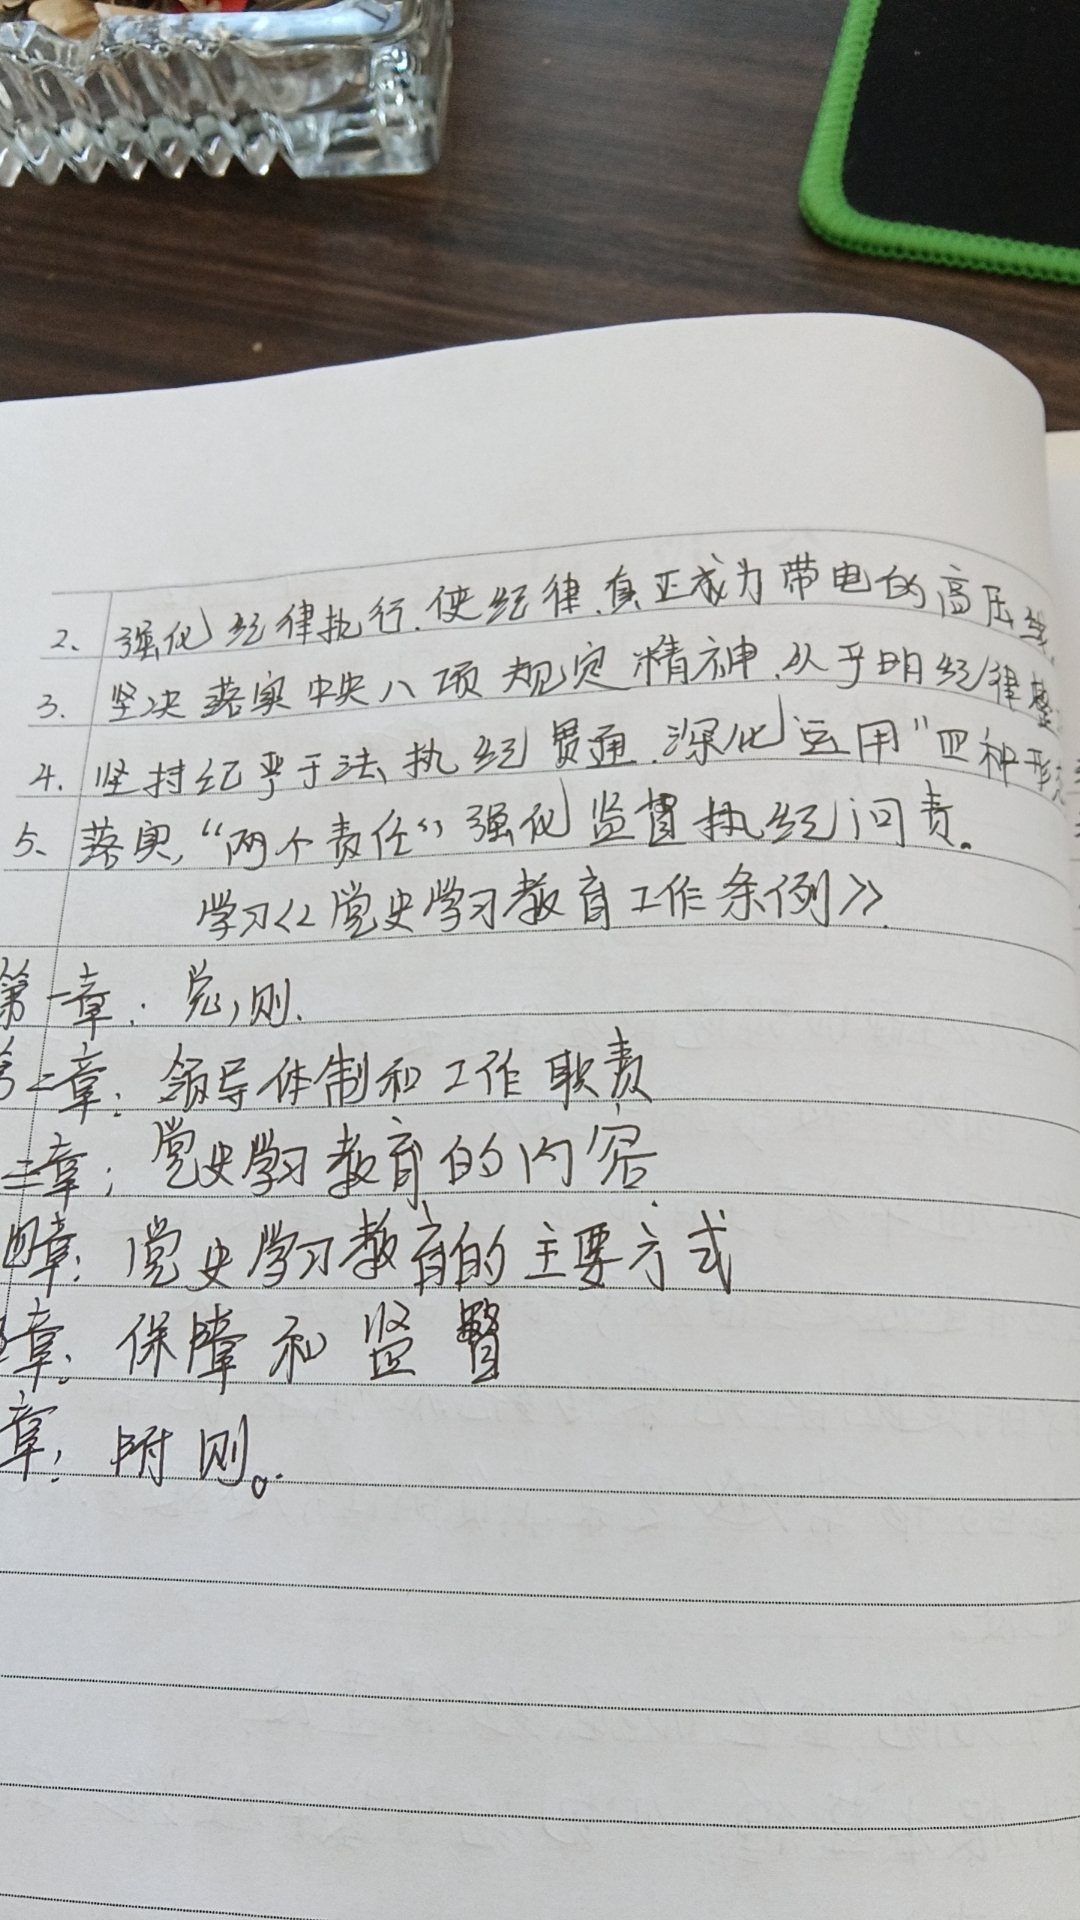 2、强化纪律执行.使纪律真正成为带电的高压线
3、坚决落实中央八项规定精神.从严明纪律整
4、坚持纪严于法、执纪贯通.深化运用"四种形
5、落实,“两个责任”强化监督执纪问责。
学习《党史学习教育工作条例》.
第一章:总则.
第二章:领导体制和工作职责
三章:党史学习教育的内容
四章:党史学习教育的主要方式
章:保障和监督
章:附则。